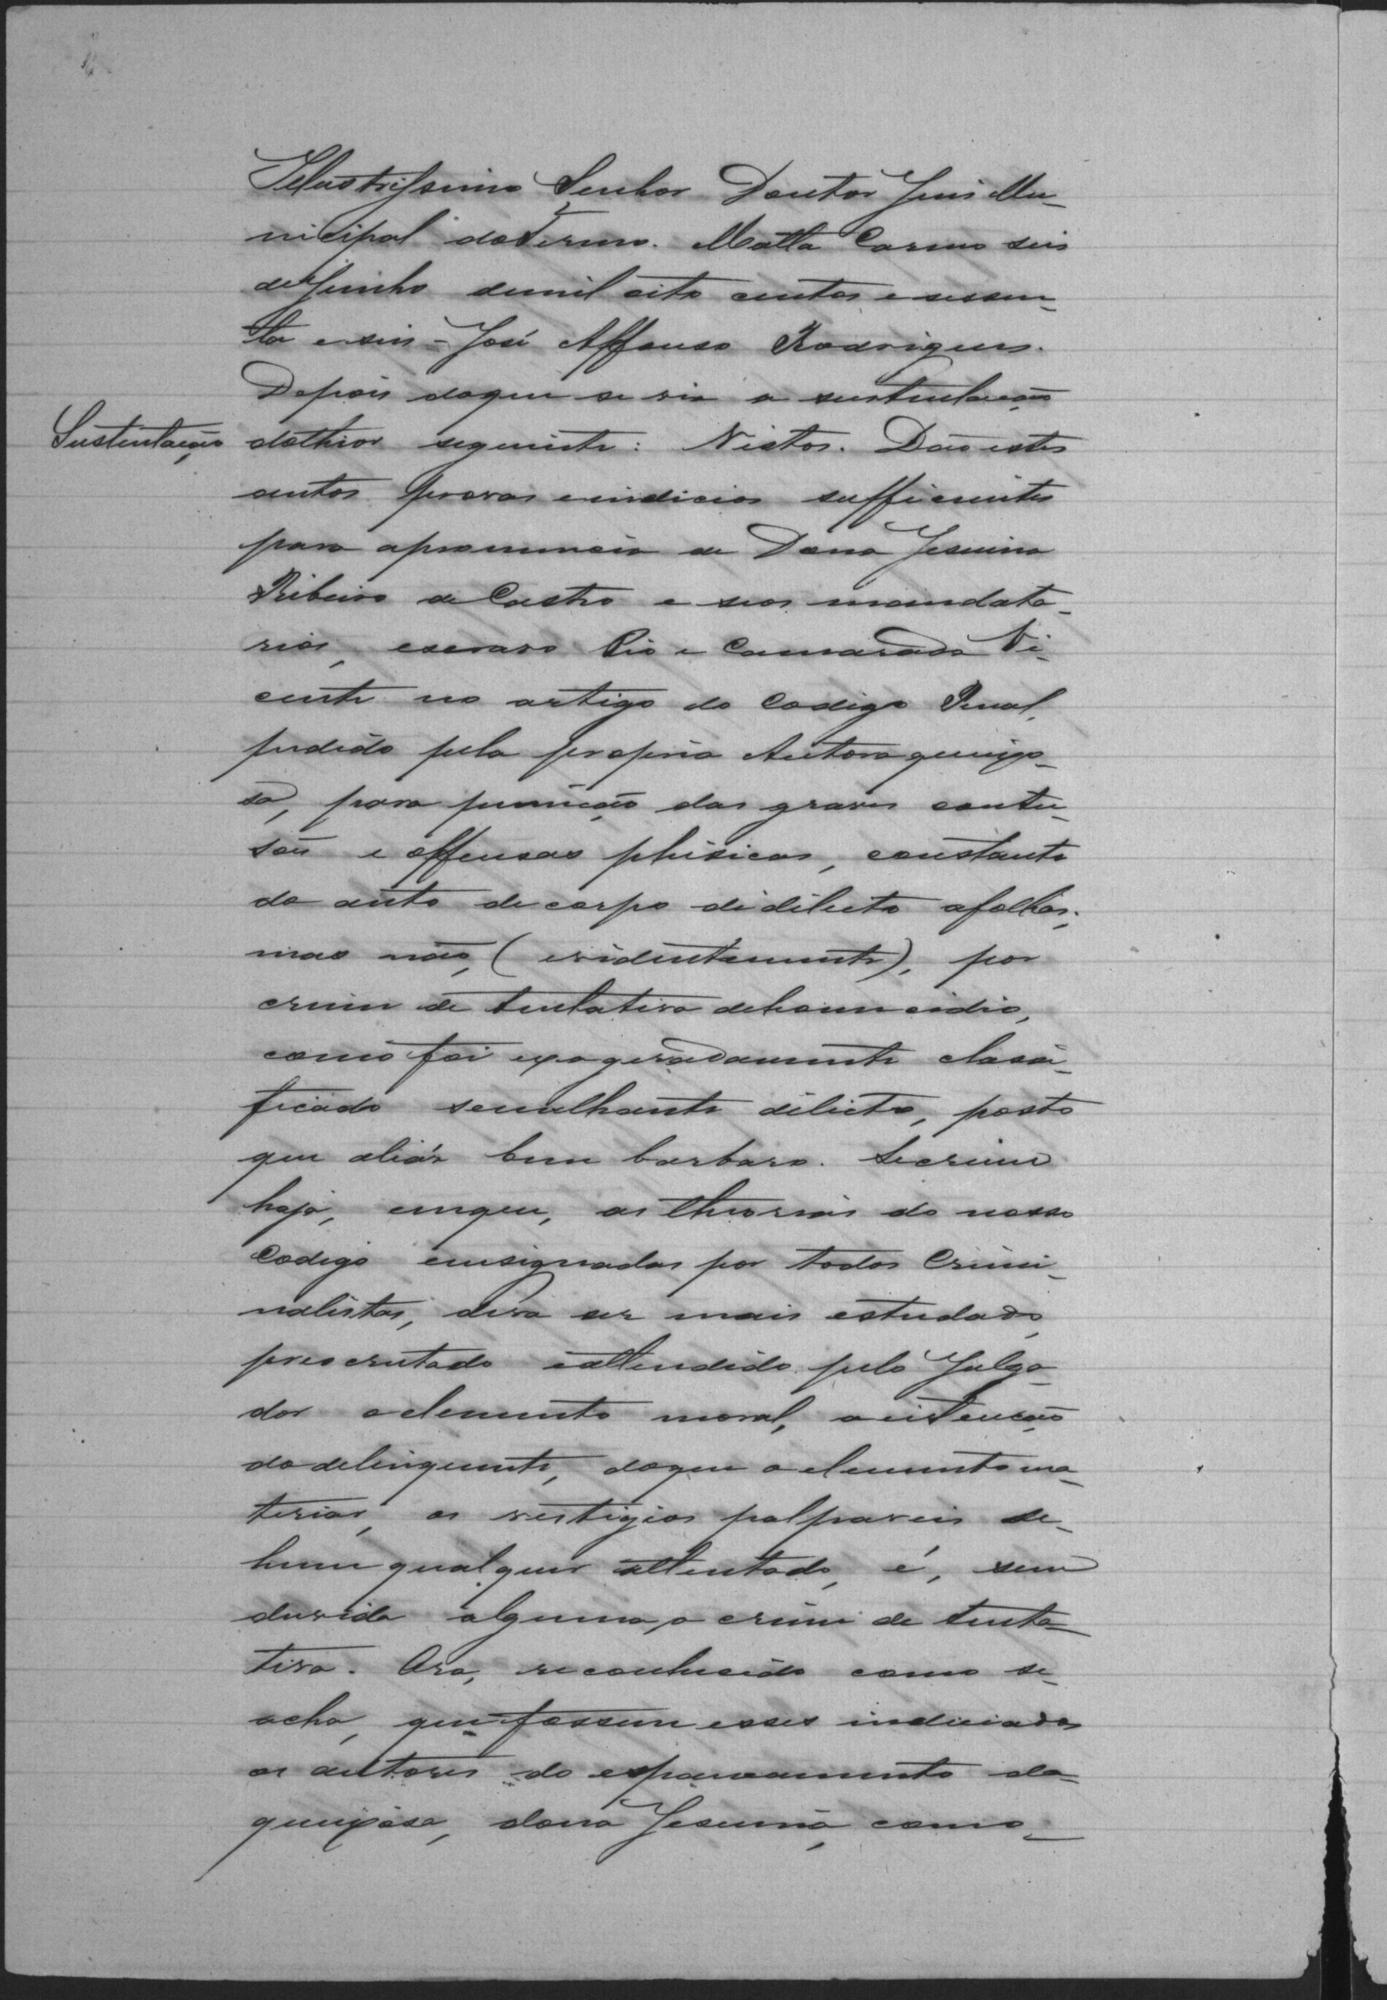 Illustrissimo Senhor Doutor Juis Mu-
nicipal do Termo. Matta Carmo seis
de Junho demil oito centos e sessen-
ta e seis - José Affonso Rodrigues.
Depois doque se via a sustentação
Sustentação
dotheor seguinte: Vistos. Dão estes
autos provas e indicios sufficientes
para apronuncia de Dona Jesuina
Ribeiro de Castro e seos mandata-
rios, escravo Pio e Camarada Vi-
cente no artigo do Codigo Penal,
pedido pela propria Autora queixo-
sa, para punição das graves contu-
sões e offensas phisicas, constante
do auto de corpo de delicto afolhas;
mas não, (evidentemente), por
crime de tentativa dehomicidio,
como foi exageradamente classi-
ficado semelhante delicto, posto
que aliás bem barbaro. Se crime
haja, emque, as theorias do nosso
Codigo ensignadas por todos Crimi-
nalistas, deva ser mais estudado,
prescrutado e attendido pelo Julga-
dor o elemento moral, a intenção
do delinquente, doque o elemento ma-
terial, os vestigios palpaveis de-
hum qualquer attentado, é, sem
duvida alguma, o crime de tenta-
tiva. Ora, reconhecido como se-
acha, que fossem esses indiciados
os autores do espancamento da
queixosa, dona Jesuina, como-